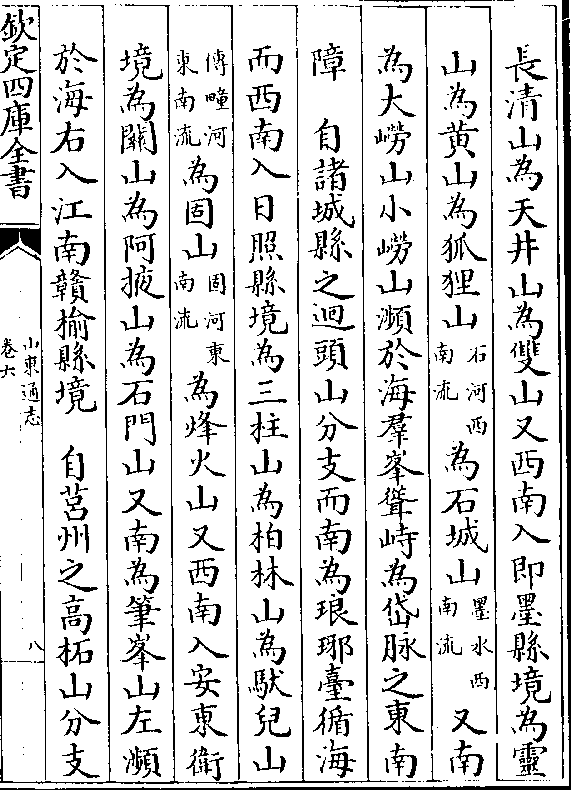 長清山為天井山為雙山又西南入即墨縣境為靈
山為黄山為狐狸山石河西南流為石城山墨水西南流又南
為大嶗山小嶗山瀕於海羣峯聳峙為岱脉之東南
障　自諸城縣之迴頭山分支而南為琅琊臺循海
而西南入日照縣境為三柱山為柏林山為馱兒山
傅疃河東南流為固山固河東南流為烽火山又西南入安東衛
境為關山為阿掖山為石門山又南為筆峯山左瀕
於海右入江南贛榆縣境　自莒州之高柘山分支
欽定四庫全書
山東通志
卷六
八